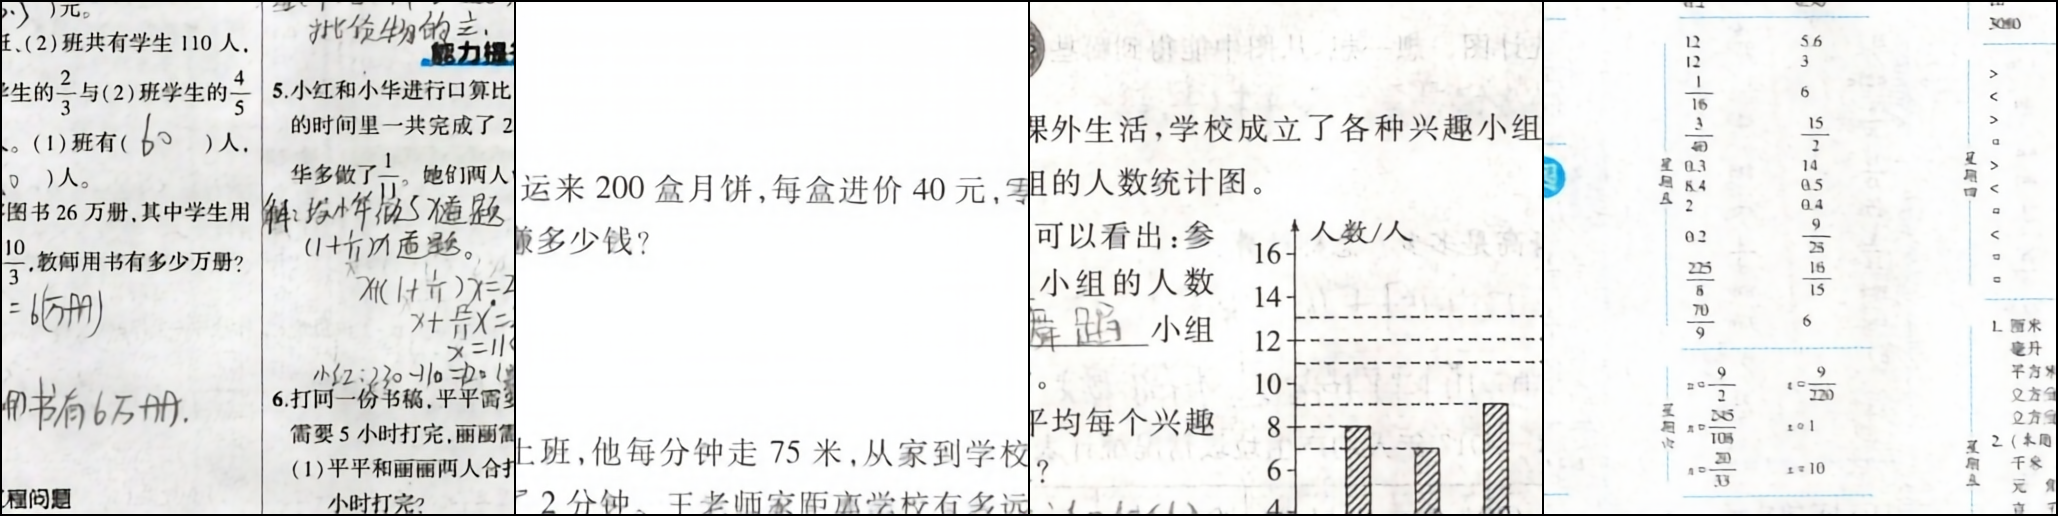 )元。
、(2)班共有学生110人,
学生的2/3与(2)班学生的4/5
。(1)班有( 60 )人,
0 )人。
图书26万册,其中学生用
10/3,教师用书有多少万册?
=6(万册)
用书有6万册.
程问题
批货物的
能力提
5.小红和小华进行口算比
的时间里一共完成了2
华多做了1/11。她们两人
解:设小华做了x道题
(1+1/11)x道题。
x+(1+1/11)x=2
x+12/11x=
x=11
小红:230-110=120(
6.打同一份书稿,平平需要
需要5小时打完,丽丽需
(1)平平和丽丽两人合打
小时打完?
运来200盒月饼,每盒进价40元,零
赚多少钱?
上班,他每分钟走75米,从家到学校
了2分钟。王老师家距离学校有多远
课外生活,学校成立了各种兴趣小组
组的人数统计图。
可以看出:参
小组的人数
舞蹈 小组
。
平均每个兴趣
?
人数/人
16
14
12
10
8
6
4
12 56
12 3
1/16 6
3/40 15/2
0.3 14
8.4 0.5
2 0.4
0.2 9/25
225/8 16/15
70/9 6
星期五
9/2 9/220
245/108 1
20/33 10
星期六
3080
>
<
>
>
<
<
星期四
1. 厘米
毫升
平方米
立方
立方
2.
千米
元
星期五